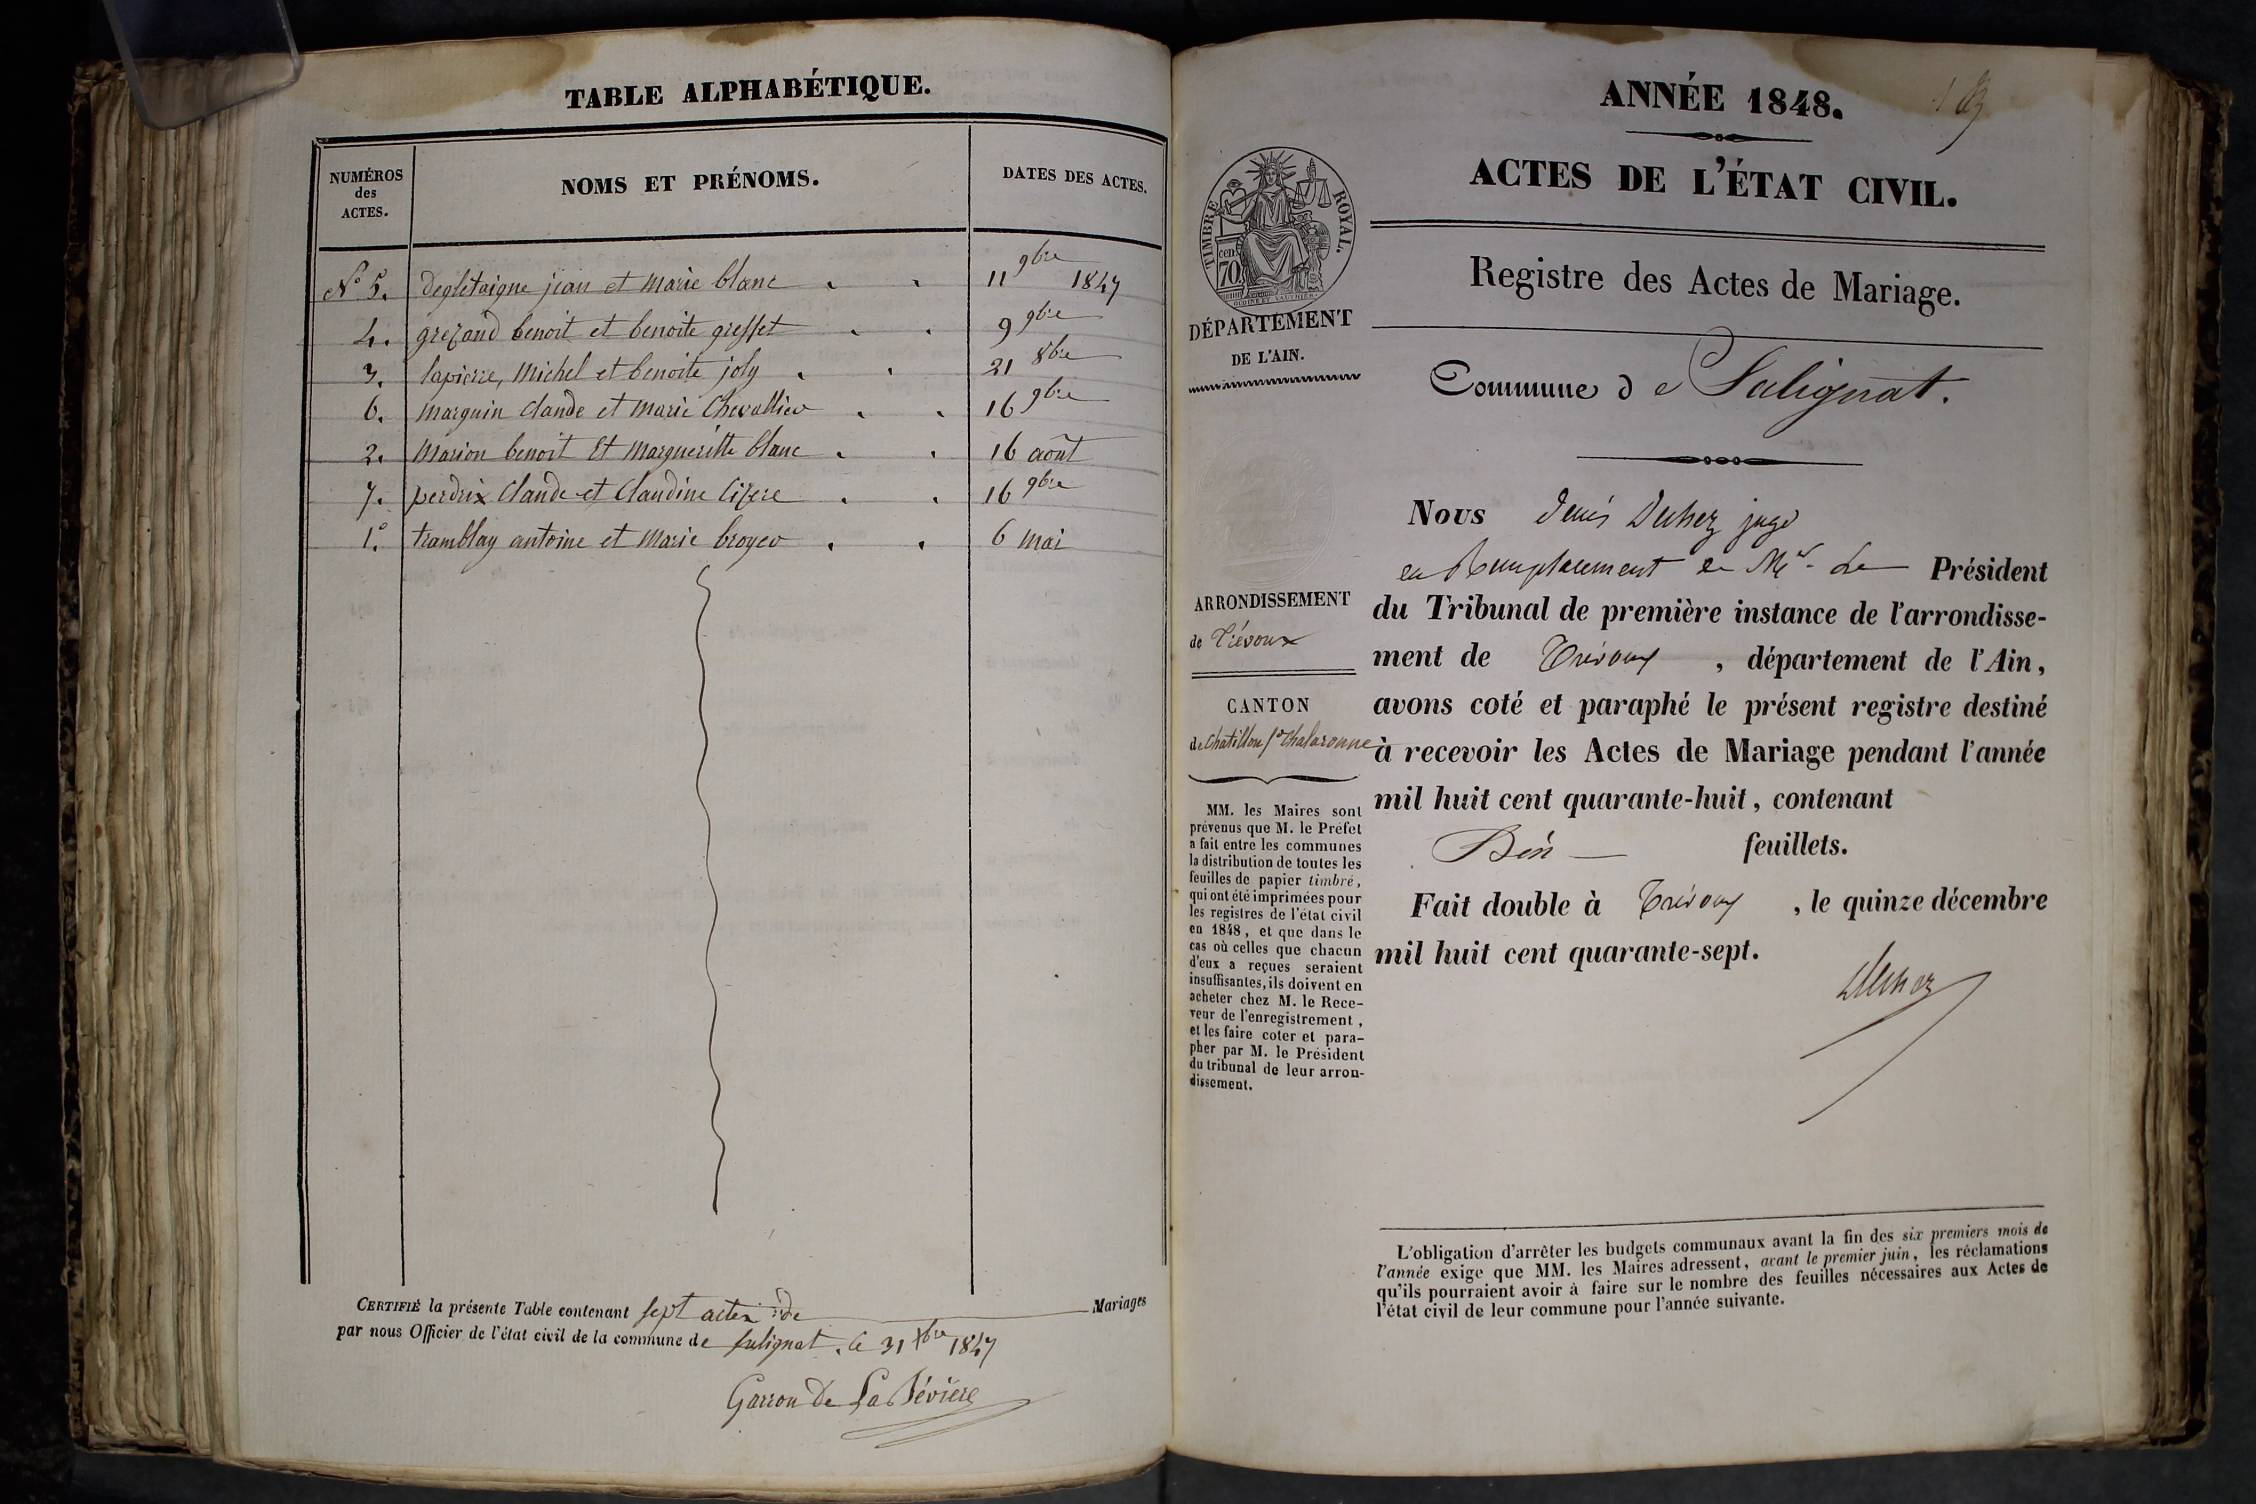 TABLE ALPHABÉTIQUE.
NUMÉROS des ACTES. NOMS ET PRÉNOMS. DATES DES ACTES.
No 5. degletaigne jean et Marie blanc 11 9bre 1847
4. grezaud benoit et benoite greffet 9 9bre
3. lapierre, Michel et benoite joly 21 8bre
6. Marguin Claude et Marie Chevallier 16 9bre
2. Marion benoit et Margueritte blanc 16 août
7. perdrix Claude et Claudine 16 9bre
1o. tramblay antoine et Marie broyer 6 mai
CERTIFIÉ la présente Table contenant sept actes de Mariages
par nous Officier de l'état civil de la commune de Sulignat, le 31 Xbre 1847
Garron De La Bévière
ANNÉE 1848.
ACTES DE L'ÉTAT CIVIL.
Registre des Actes de Mariage.
Commune de Sulignat.
TIMBRE ROYAL.
cen. 70.
DÉPARTEMENT
DE L'AIN.
ARRONDISSEMENT
de Trévoux
CANTON
de Chatillon s/ Chalaronne
MM. les Maires sont
prévenus que M. le Préfet
a fait entre les communes
la distribution de toutes les
feuilles de papier timbré,
qui ont été imprimées pour
les registres de l'état civil
en 1848, et que dans le
cas où celles que chacun
d'eux a reçues seraient
insuffisantes, ils doivent en
acheter chez M. le Rece-
veur de l'enregistrement,
et les faire coter et para-
pher par M. le Président
du tribunal de leur arron-
dissement.
Nous Denis Duhez juge
en Remplacement de Mr. Le Président
du Tribunal de première instance de l'arrondisse-
ment de Trévoux, département de l'Ain,
avons coté et paraphé le présent registre destiné
à recevoir les Actes de Mariage pendant l'année
mil huit cent quarante-huit, contenant
feuillets.
Fait double à Trévoux, le quinze décembre
mil huit cent quarante-sept.
Duhez
L'obligation d'arrêter les budgets communaux avant la fin des six premiers mois de
l'année exige que MM. les Maires adressent, avant le premier juin, les réclamations
qu'ils pourraient avoir à faire sur le nombre des feuilles nécessaires aux Actes de
l'état civil de leur commune pour l'année suivante.